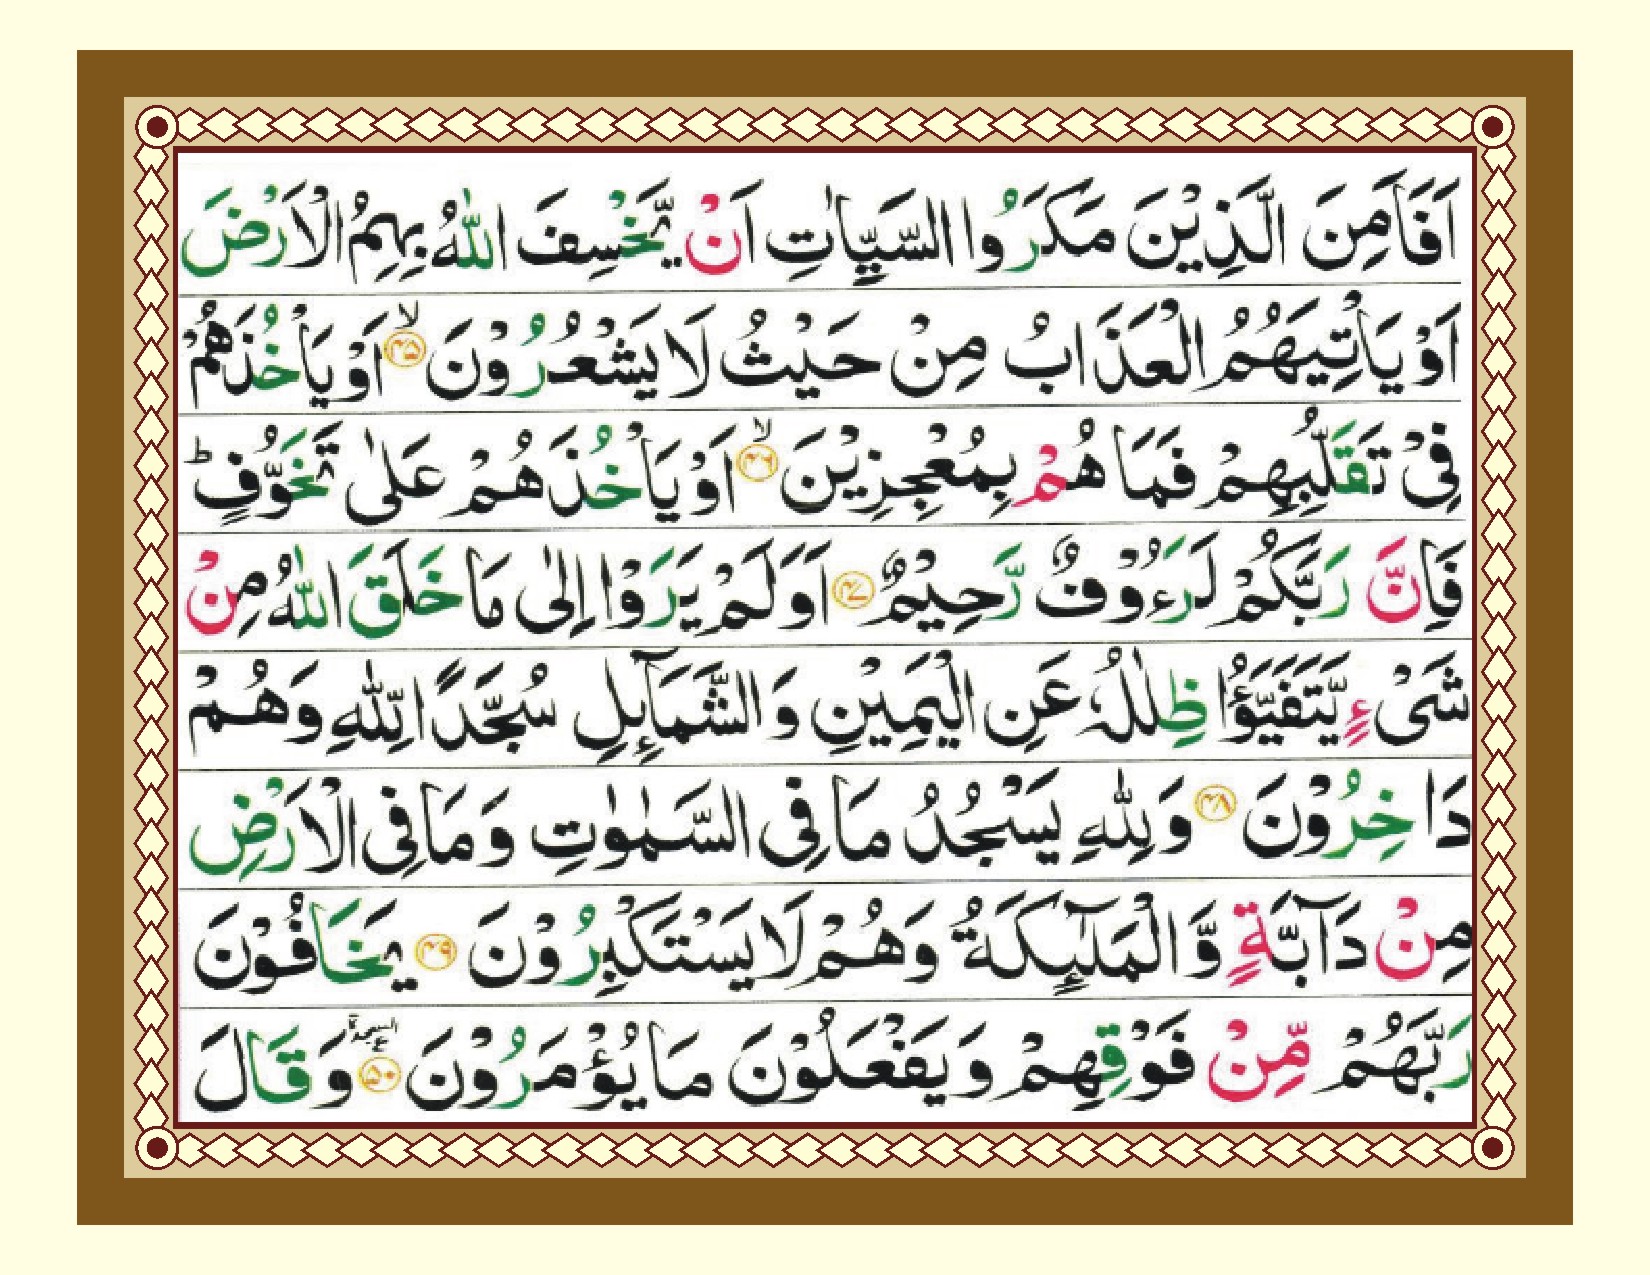 اَفَاَمِنَ الَّذِيْنَ مَكَرُوا السَّيِّاٰتِ اَنْ يَّخْسِفَ اللّٰهُ بِهِمُ الْاَرْضَ
اَوْ يَاْتِيَهُمُ الْعَذَابُ مِنْ حَيْثُ لَا يَشْعُرُوْنَ ۙ‏﴿۴۵﴾ اَوْ يَاْخُذَهُمْ
فِىْ تَقَلُّبِهِمْ فَمَا هُمْ بِمُعْجِزِيْنَ ۙ‏﴿۴۶﴾ اَوْ يَاْخُذَهُمْ عَلٰى تَخَوُّفٍ ؕ
فَاِنَّ رَبَّكُمْ لَرَءُوْفٌ رَّحِيْمٌ ﴿۴۷﴾ اَوَلَمْ يَرَوْا اِلٰى مَا خَلَقَ اللّٰهُ مِنْ
شَىْءٍ يَّتَفَيَّؤُا ظِلٰلُهٗ عَنِ الْيَمِيْنِ وَالشَّمَآئِلِ سُجَّدًا لِّلّٰهِ وَهُمْ
دَاخِرُوْنَ ﴿۴۸﴾ وَلِلّٰهِ يَسْجُدُ مَا فِى السَّمٰوٰتِ وَمَا فِى الْاَرْضِ
مِنْ دَآبَّةٍ وَّالْمَلٰٓئِكَةُ وَهُمْ لَا يَسْتَكْبِرُوْنَ ﴿۴۹﴾ يَخَافُوْنَ
رَبَّهُمْ مِّنْ فَوْقِهِمْ وَيَفْعَلُوْنَ مَا يُؤْمَرُوْنَ ﴿۵۰﴾ السجدة ع وَقَالَ